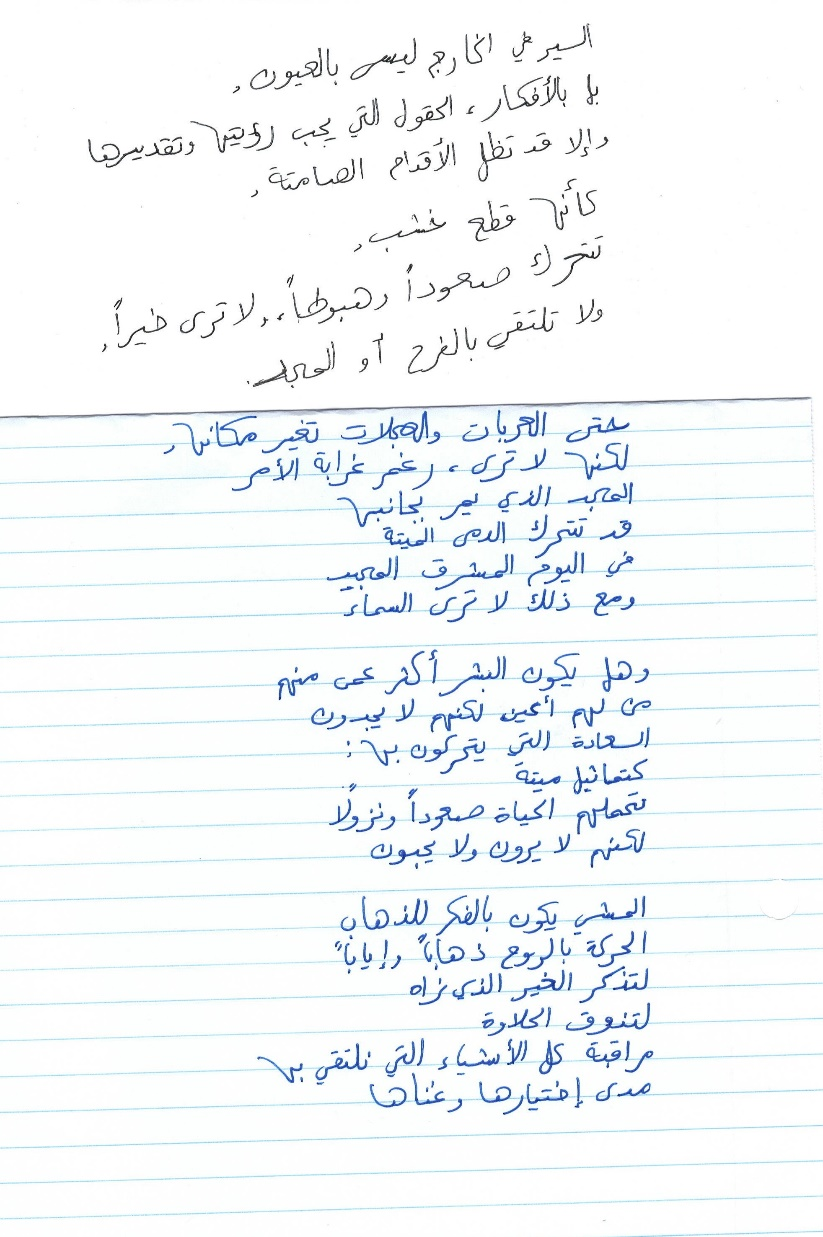 السير في الخارج ليس بالعيون,
بل بالأفكار، الحقول التي يجب رؤيتها وتقديرها
وإلا قد تظل الأقدام الصامتة,
كأنها قطع خشب,
تتحرك صعوداً وهبوطاً,، لا ترى خيراً,
ولا تلتقي بالفرح أو المجد.
حتى العربات والعجلات تغير مكانها,
لكنها لا ترى، رغم غرابة الأمر
المجد الذي يمر بجانبها
قد تتحرك الدمى الميتة
في اليوم المشرق المجيد
ومع ذلك لا ترى السماء
وهل يكون البشر أكثر عمى منهم
من لهم أعين لكنهم لا يجدون
السعادة التي يتحركون بها:
كتماثيل ميتة
تحملهم الحياة صعوداً ونزولًا
لكنهم لا يرون ولا يحبون
المشي يكون بالفكر للذهاب
الحركة بالروح ذهاباً وإياباً
لتذكر الخير الذي نراه
لتذوق الحلاوة
مراقبة كل الأشياء التي نلتقي بها
مدى إختيارها وغناها